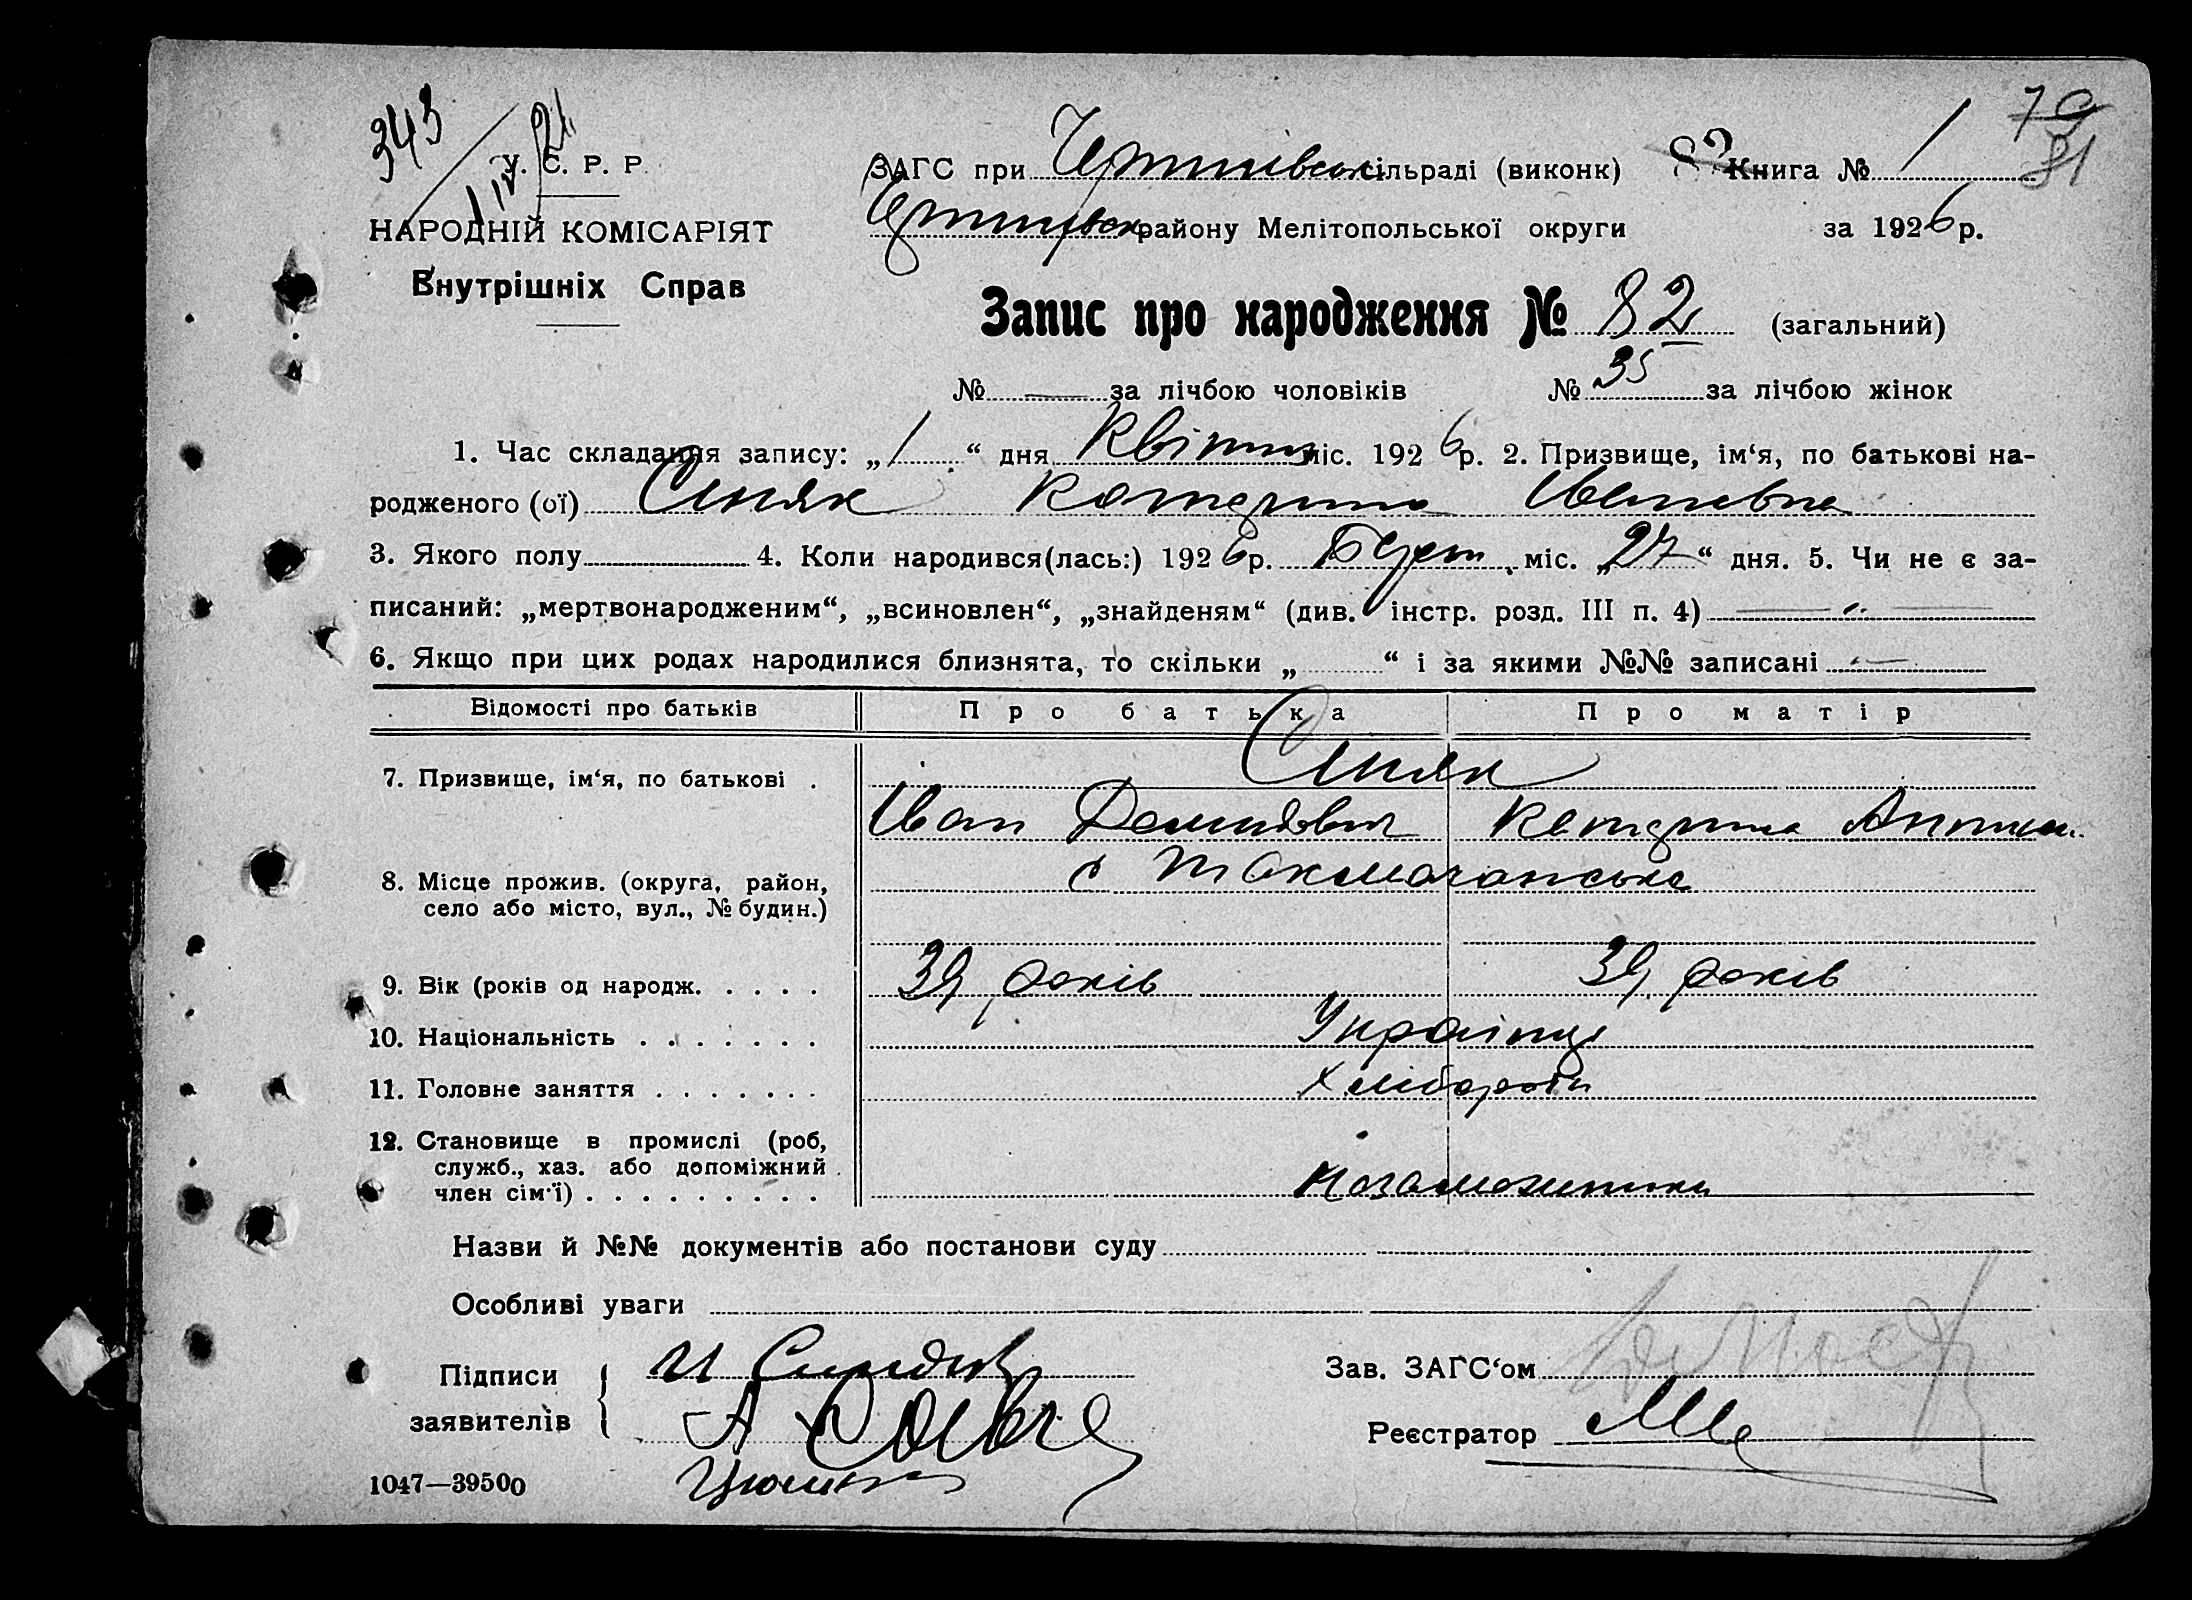 343
79
81
У. С. Р. Р.
НАРОДНІЙ КОМІСАРІЯТ
Внутрішніх Справ
ЗАГС при сільраді (виконк) Книга № 1
району Мелітопольської округи за 1926 р.
Запис про народження № 82 (загальний)
№ — за лічбою чоловіків № 35 за лічбою жінок
1. Час складання запису: „1“ дня Квітня міс. 1926 р. 2. Призвище, ім‘я, по батькові на-
родженого (ої) Синяк Катерина Ивановна
3. Якого полу 4. Коли народився(лась:) 1926 р. міс. „27“ дня. 5. Чи не є за-
писаний: „мертвонародженим“, „всиновлен“, „знайденям“ (див. інстр. розд. III п. 4) — „ —
6. Якщо при цих родах народилися близнята, то скільки „ “ і за якими №№ записані —
Відомості про батьків Про батька Про матір
Синяк
7. Призвище, ім‘я, по батькові .
Іван Демидович Катерина
8. Місце прожив. (округа, район,
село або місто, вул., № будин.)
9. Вік (років од народж. . . . . 39 років 39 років
10. Національність . . . . . . . Українці
11. Головне заняття . . . . . . . Хлібороби
12. Становище в промислі (роб,
служб., хаз. або допоміжний
член сім‘ї) . . . . . . . . . Незаможники
Назви й №№ документів або постанови суду
Особливі уваги
Підписи
заявителів
Зав. ЗАГС‘ом
Реєстратор
1047—39500